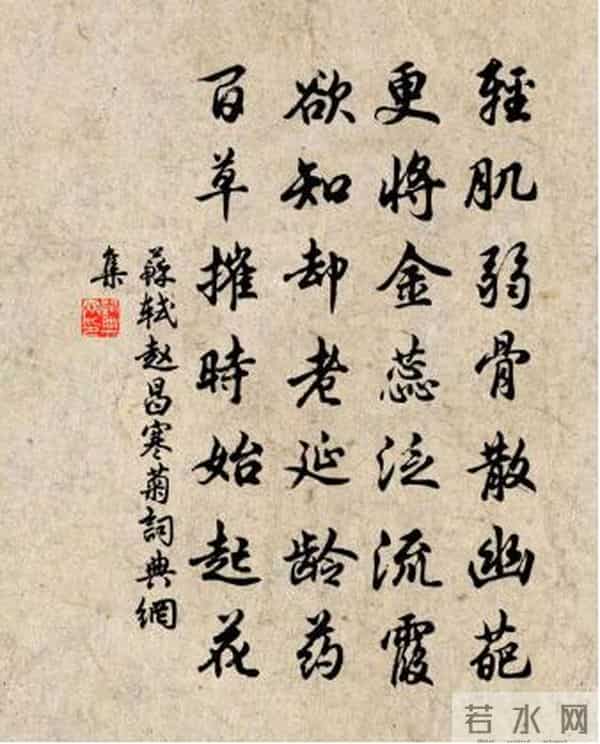 輕肌弱骨散幽葩
更將金蕊泛流霞
欲知却老延齡药
百草摧時始起花
蘇軾赵昌寒菊詞典網
集
若水网